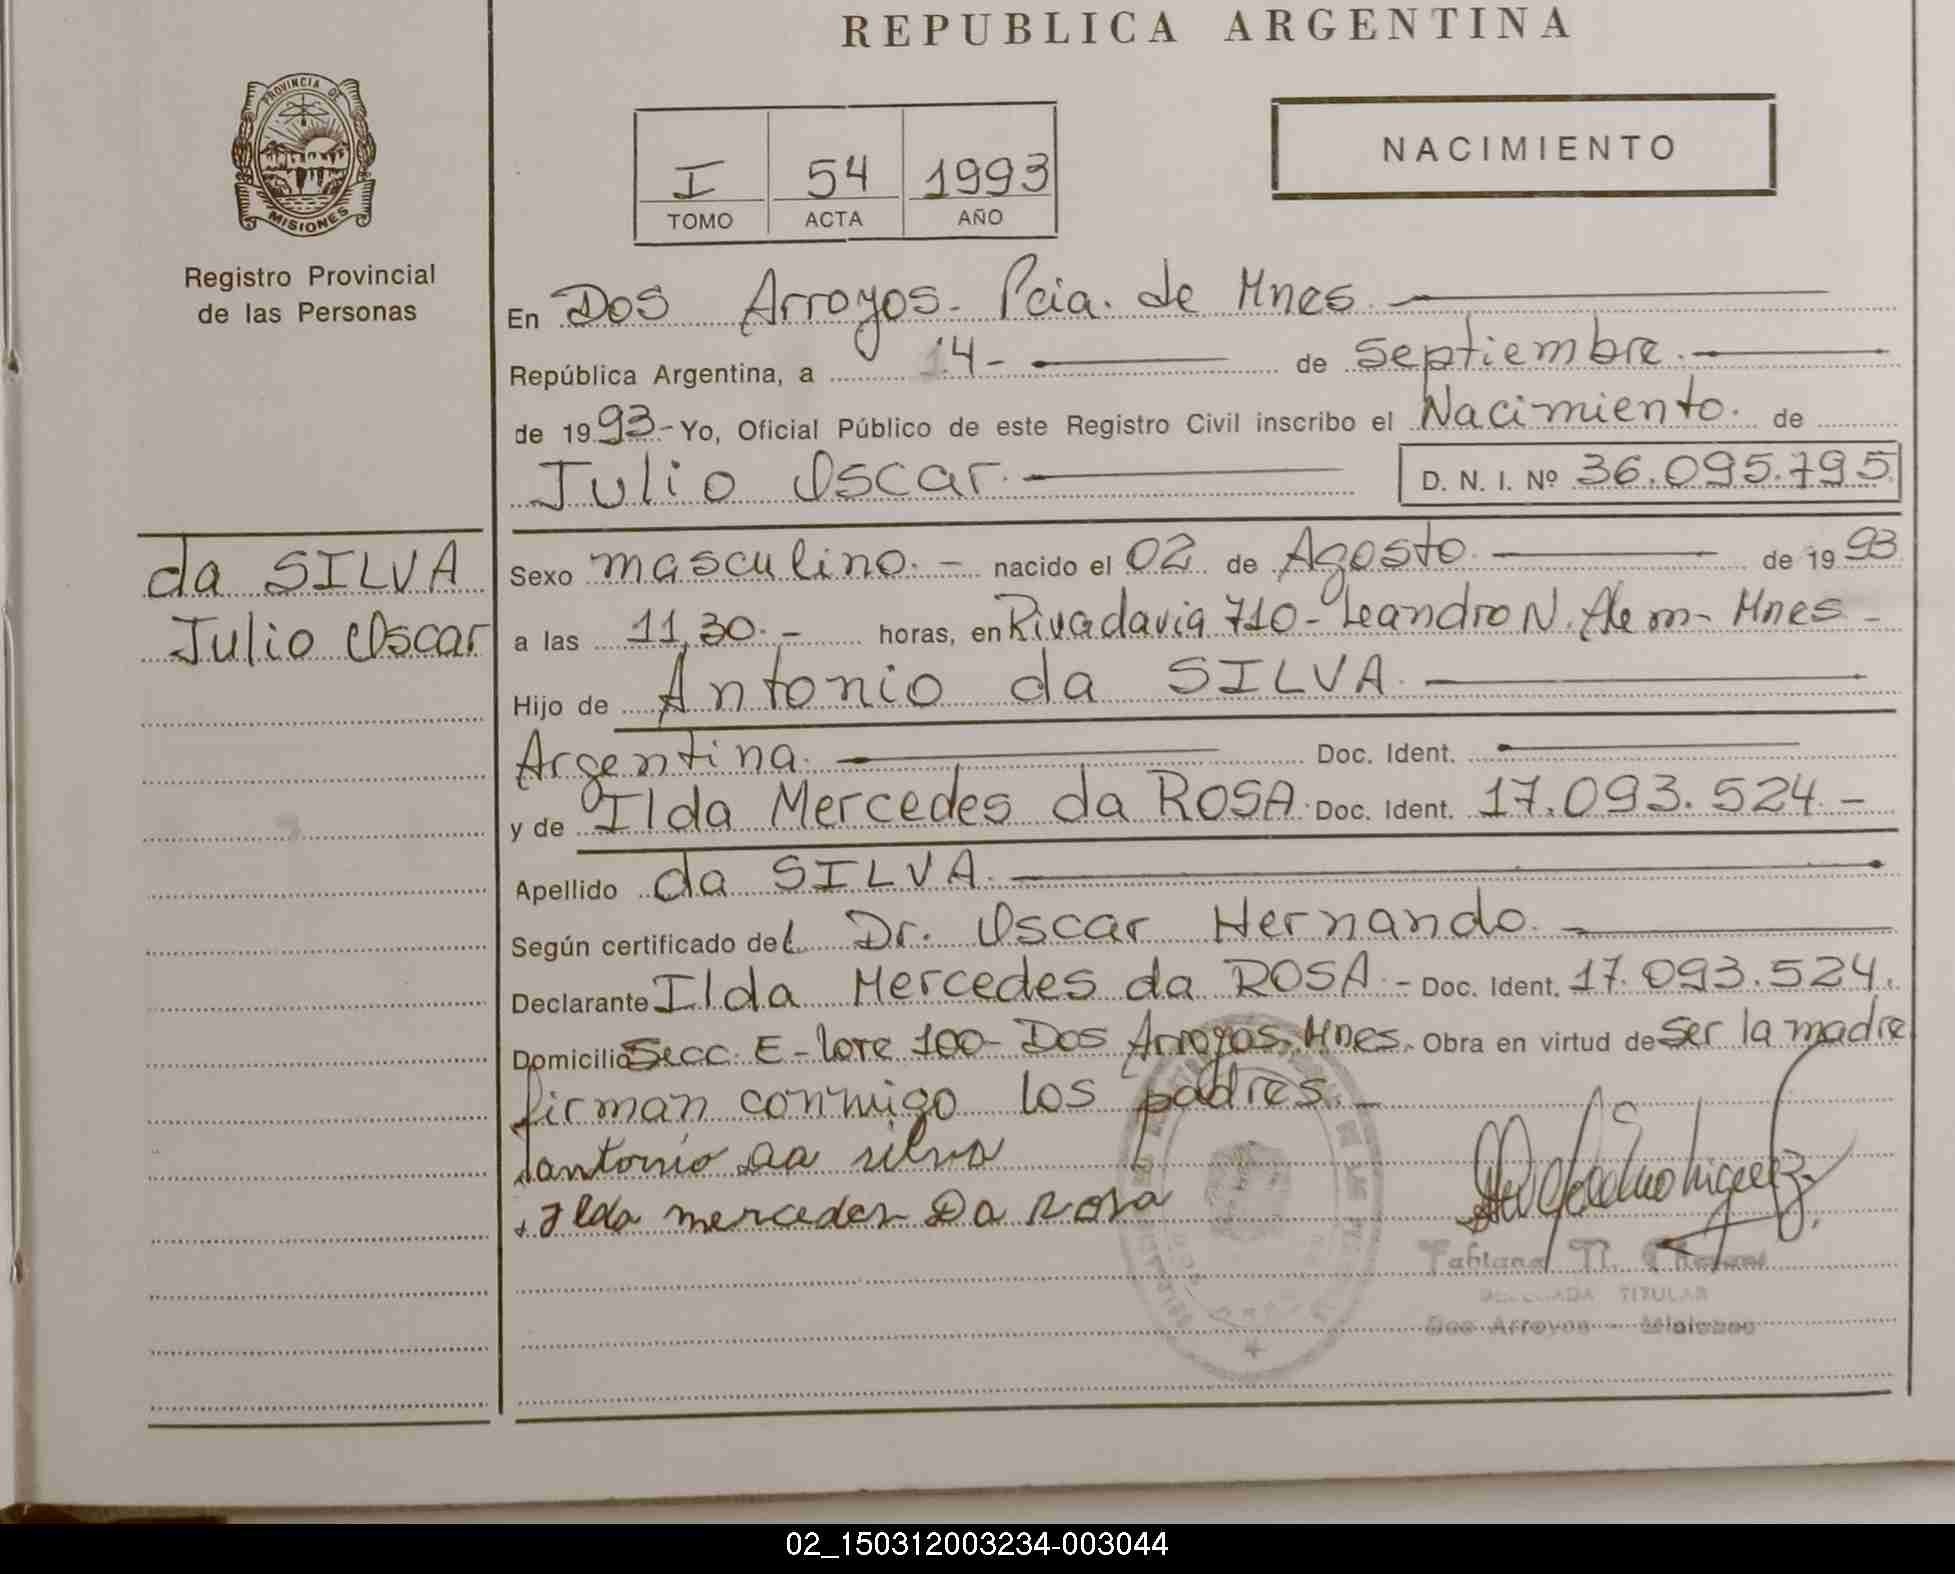 REPUBLICA ARGENTINA
PROVINCIA DE
MISIONES
Registro Provincial
de las Personas
I 54 1993
TOMO ACTA AÑO
NACIMIENTO
En Dos Arroyos- Pcia. de Mnes
República Argentina, a 14- de septiembre.
de 1993- Yo, Oficial Público de este Registro Civil inscribo el Nacimiento. de
Julio Oscar. D. N. I. Nº 36.095.795
da SILVA
Julio Oscar
Sexo masculino.- nacido el 02 de Agosto de 1993
a las 11,30.- horas, en Rivadavia 710- Leandro N. Alem- Mnes-
Hijo de Antonio da SILVA.
Argentina. Doc. Ident.
y de Ilda Mercedes da ROSA. Doc. Ident. 17.093.524.-
Apellido da SILVA.
Según certificado del Dr. Oscar Hernando.
Declarante Ilda Mercedes da ROSA.- Doc. Ident. 17.093.524.
Domicilio Secc. E- lote 100- Dos Arroyos. Mnes. Obra en virtud de ser la madre
firman conmigo los padres.-
antonio da silva
Ilda mercedes Da Rosa
TITULAR
Dos Arroyos - Misiones
02_150312003234-003044